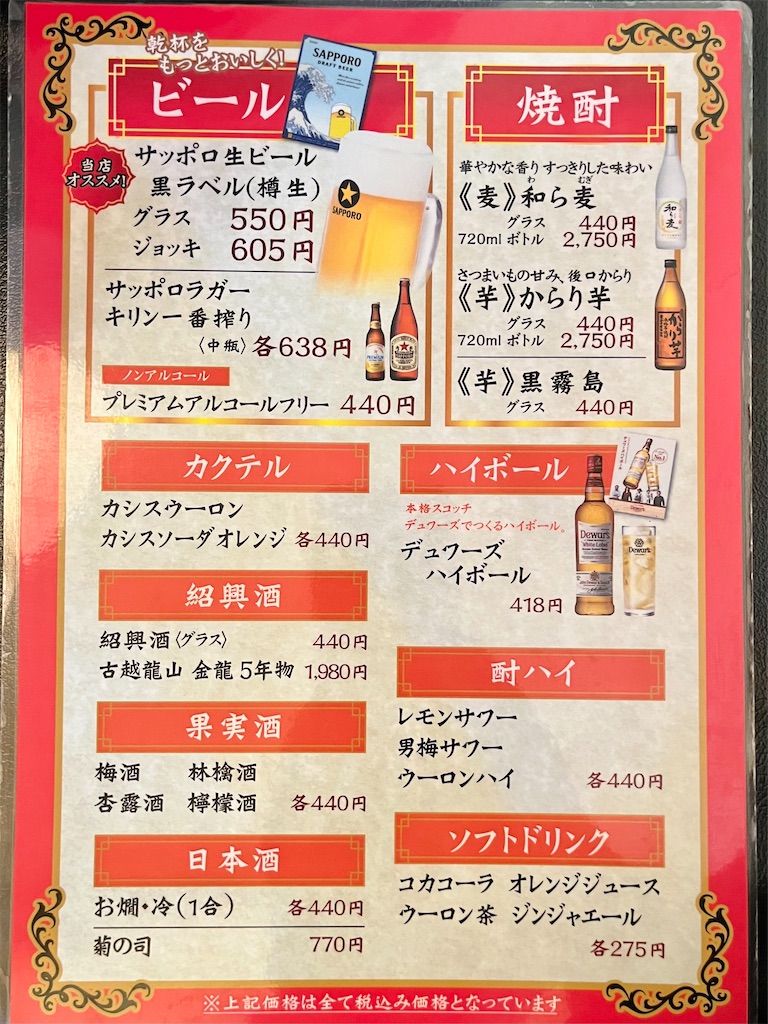 乾杯を
もっとおいしく!
ビール
SAPPORO
DRAFT BEER
当店
オススメ!
サッポロ生ビール
黒ラベル(樽生)
グラス 550円
ジョッキ 605円
SAPPORO
サッポロラガー
キリン一番搾り
〈中瓶〉各638円
ノンアルコール
プレミアムアルコールフリー 440円
焼酎
華やかな香り すっきりした味わい
わ むぎ
《麦》和ら麦
グラス 440円
720ml ボトル 2,750円
和ら麦
さつまいもの甘み、後口からり
《芋》からり芋
グラス 440円
720ml ボトル 2,750円
からり芋
《芋》黒霧島
グラス 440円
カクテル
カシスウーロン
カシスソーダオレンジ 各440円
紹興酒
紹興酒〈グラス〉 440円
古越龍山 金龍 5年物 1,980円
果実酒
梅酒 林檎酒
杏露酒 檸檬酒 各440円
日本酒
お燗・冷(1合) 各440円
菊の司 770円
ハイボール
本格スコッチ
デュワーズでつくるハイボール。
デュワーズ
ハイボール
418円
Dewar's
White Label
Dewar's
酎ハイ
レモンサワー
男梅サワー
ウーロンハイ 各440円
ソフトドリンク
コカコーラ オレンジジュース
ウーロン茶 ジンジャエール
各275円
※上記価格は全て税込み価格となっています